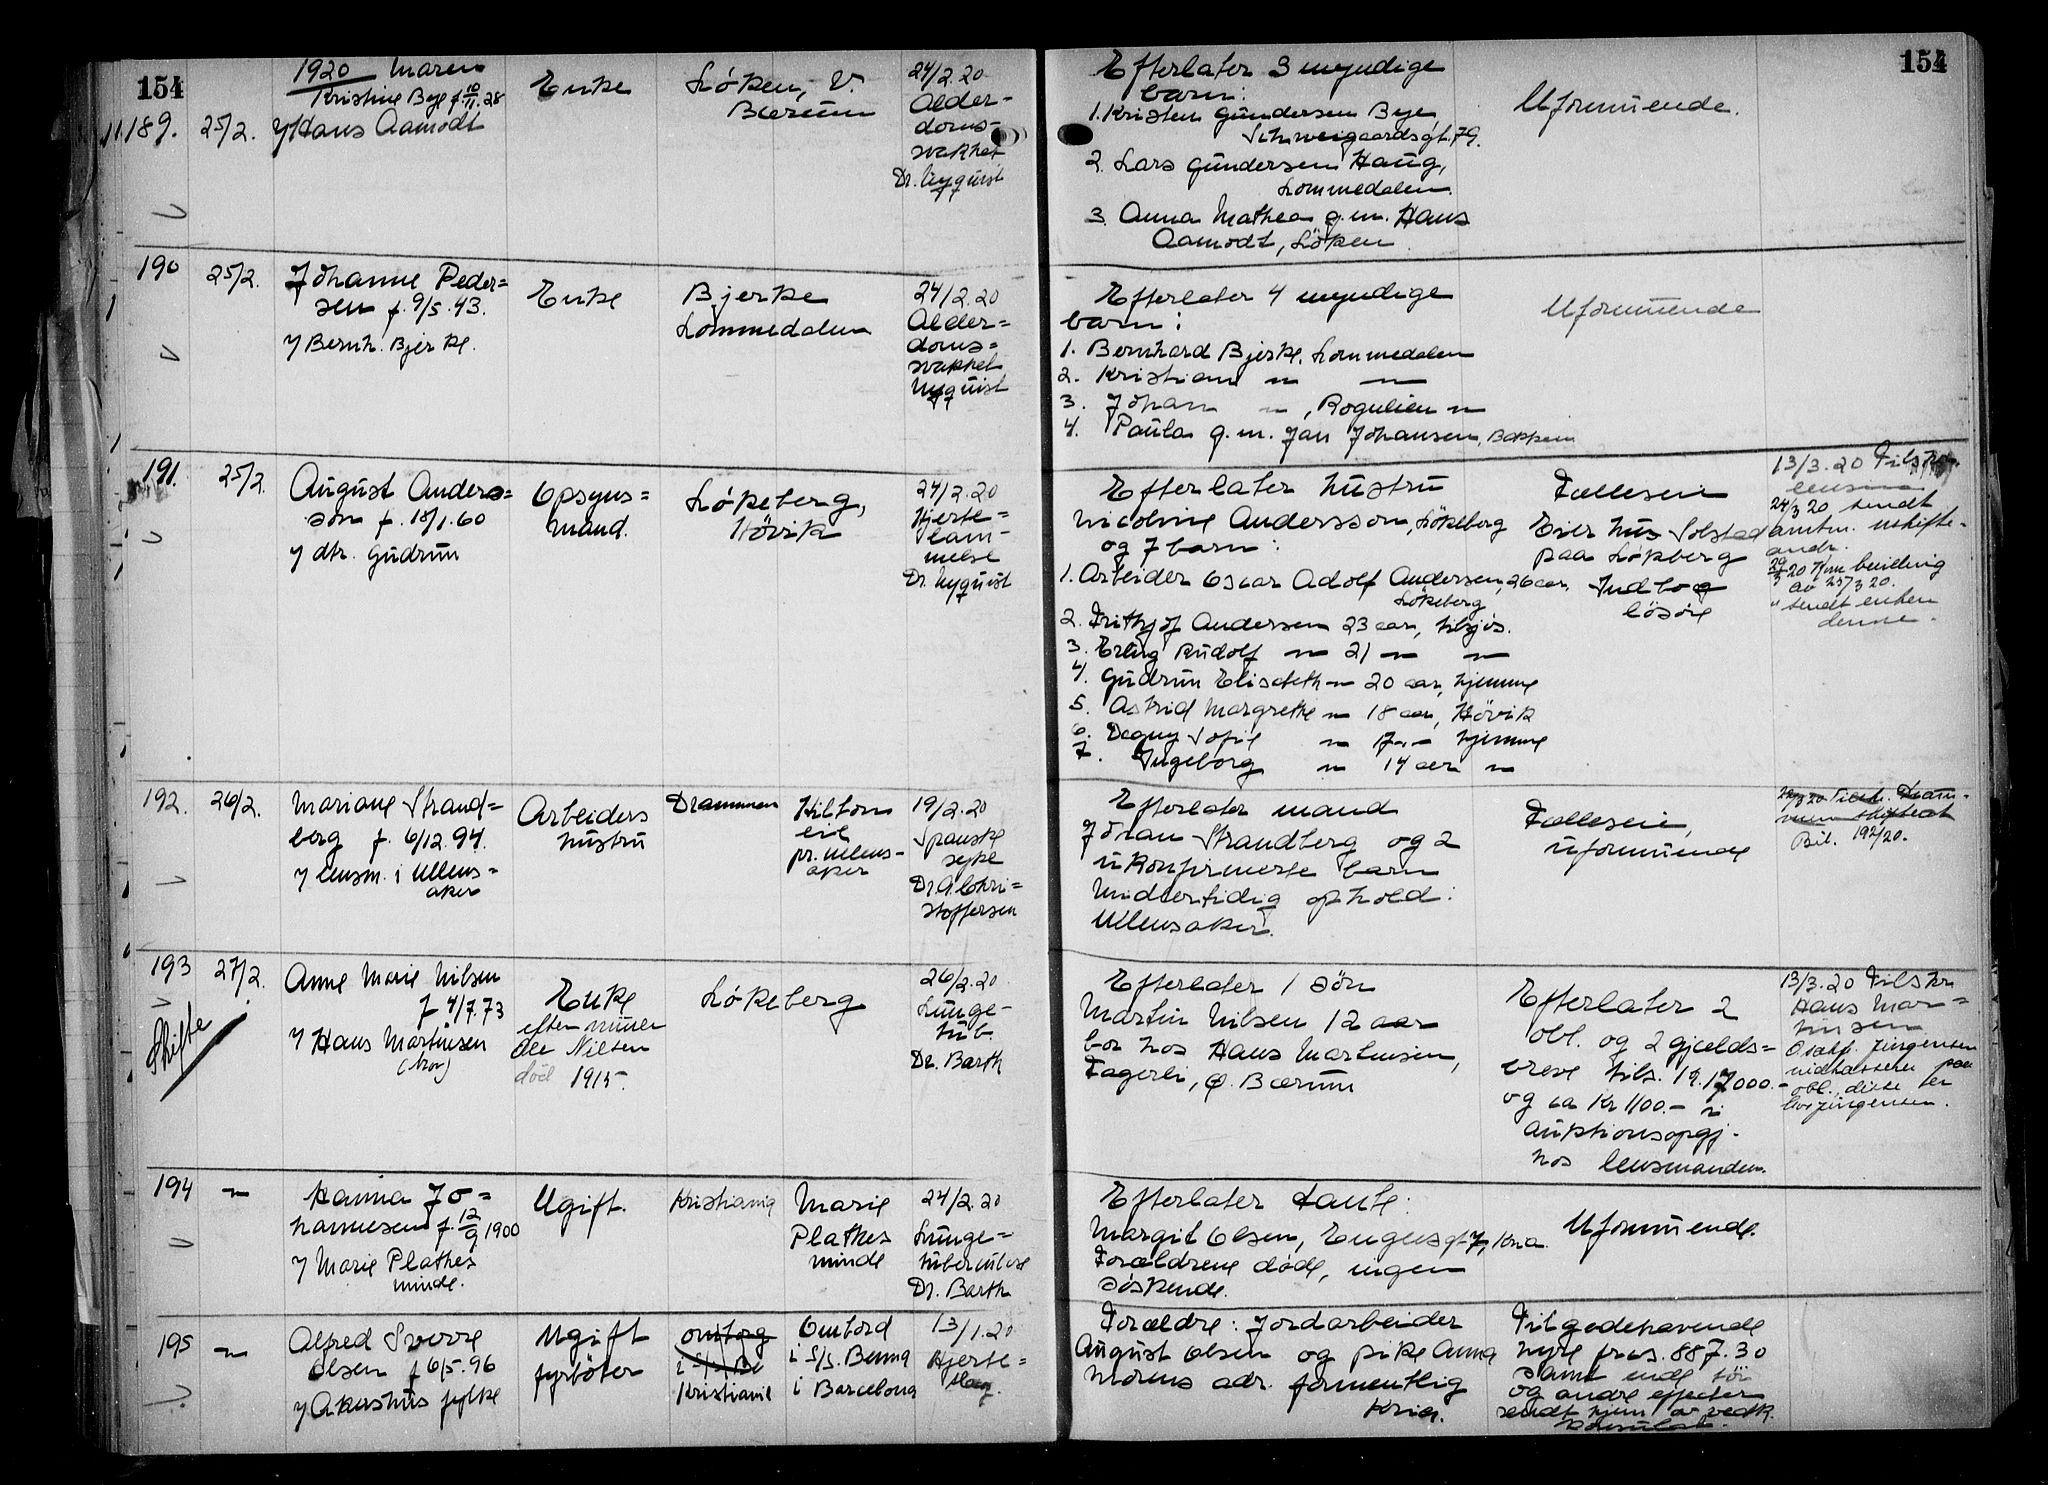 154
154
1920 Maren
Kristine Bye f. 10/11.28
189. 25/2. Hans Aamodt
Enke
Løken, V.
Bærum
24/2.20
Alder-
doms-
svakhet
Dr. Nyquist
Efterlater 3 myndige
barn:
1. Kristen Gundersen Bye,
Schweigaardsgt. 79.
2. Lars Gundersen Haug,
Lommedalen.
3. Anna Mathea g.m. Hans
Aamodt, Løken
Uformuende.
190 25/2. Johanne Peder=
sen f. 9/5.43.
Bernh. Bjerke.
Enke
Bjerke
Lommedalen
24/2.20
Alder=
doms=
svakhet
Nyquist
Efterlater 4 myndige
barn:
1. Bernhard Bjerke, Lommedalen
2. Kristian " — " —
3. Johan " , Rognlien "
4. Paula g.m. Jan Johansen, Bakken
Uformuende
191. 25/2. August Anders=
son f. 18/1.60
dtr. Gudrun
Opsyns=
mand.
Løkeberg,
Høvik
24/2.20
Hjerte=
lam-
melse
Dr. Nyquist
Efterlater hustru
Nicoline Andersson, Løkeberg
og 7 barn:
1. Arbeider Oscar Adolf Andersen, 26 aar,
Løkeberg
2. Frithjof Andersen 23 aar, tilsjøs.
3. Erling Rudolf " 21 " "
4. Gudrun Elisabeth " 20 aar, hjemme
5. Astrid Margrethe " 18 aar, Høvik
6. Dagny Sofie " 17 " " hjemme
7. Ingeborg " 14 aar "
Fælleseie
Eier hus Solstad
paa Løkeberg
Indbo og
løsøre
13/3.20 Tilskr.
24/3 20 sendt
amtm. uskifte-
andr.
29/3 20 bevilling
av 25/3 20.
" sendt enken
denne.
192. 26/2. Mariane Strand=
berg f. 6/12.94.
lensm. i Ullens=
aker
Arbeiders
hustru
Drammen
pr. Ullens-
aker
19/2.20
Spanske
syke
Dr. A. Chri=
stoffersen
Efterlater mand
Johan Strandberg og 2
ukonfirmerte barn
Midlertidig ophold:
Ullensaker.
Fælleseie,
uformuende
Bil. 192/20.
193 27/2. Anne Marie Nilsen
f 4/7.73
Hans Martinsen
(bror)
Skifte
Enke
efter
Nilsen
død 1915.
Løkeberg
26/2.20
Lunge-
tub.
Dr. Barth
Efterlater 1 søn
Martin Nilsen 12 aar
bor hos Hans Martinsen,
Fagerli, Ø. Bærum
Efterlater 2
obl. og 2 gjelds=
breve tils. 17000.-
og ca Kr 1100.- i
auktionsopgj.
hos lensmanden.
13/3.20 Tilskr
Hans Mar=
tinsen
Jürgensen
paa
obl., disse
Jürgensen.
194 " Hanna Jo=
hannesen f. 12/9 1900
Marie Plathes
minde.
Ugift.
Kristiania
Marie
Plathes
minde
24/2.20
Lunge=
tuberculose
Dr. Barth
Efterlater tante:
Margit Olsen, Enggsgt 7, Kria.
Forældrene døde, ingen
søskende.
Uformuende.
195 " Alfred Sverre
Olsen f 6/5.96
Akershus fylke
Ugift
fyrbøter
ombord
i S/S
Kristiania
Ombord
i S/S. Benna
i Barcelona
13/1.20
Hjerte=
slag.
Forældre: Jordarbeider
August Olsen og pike Anna
Morens adr. formentlig
Kria.
Tilgodehavende
hyre 887.30
samt endel tøi
og andre effecter
sendt hjem av vedk.
konsulat.